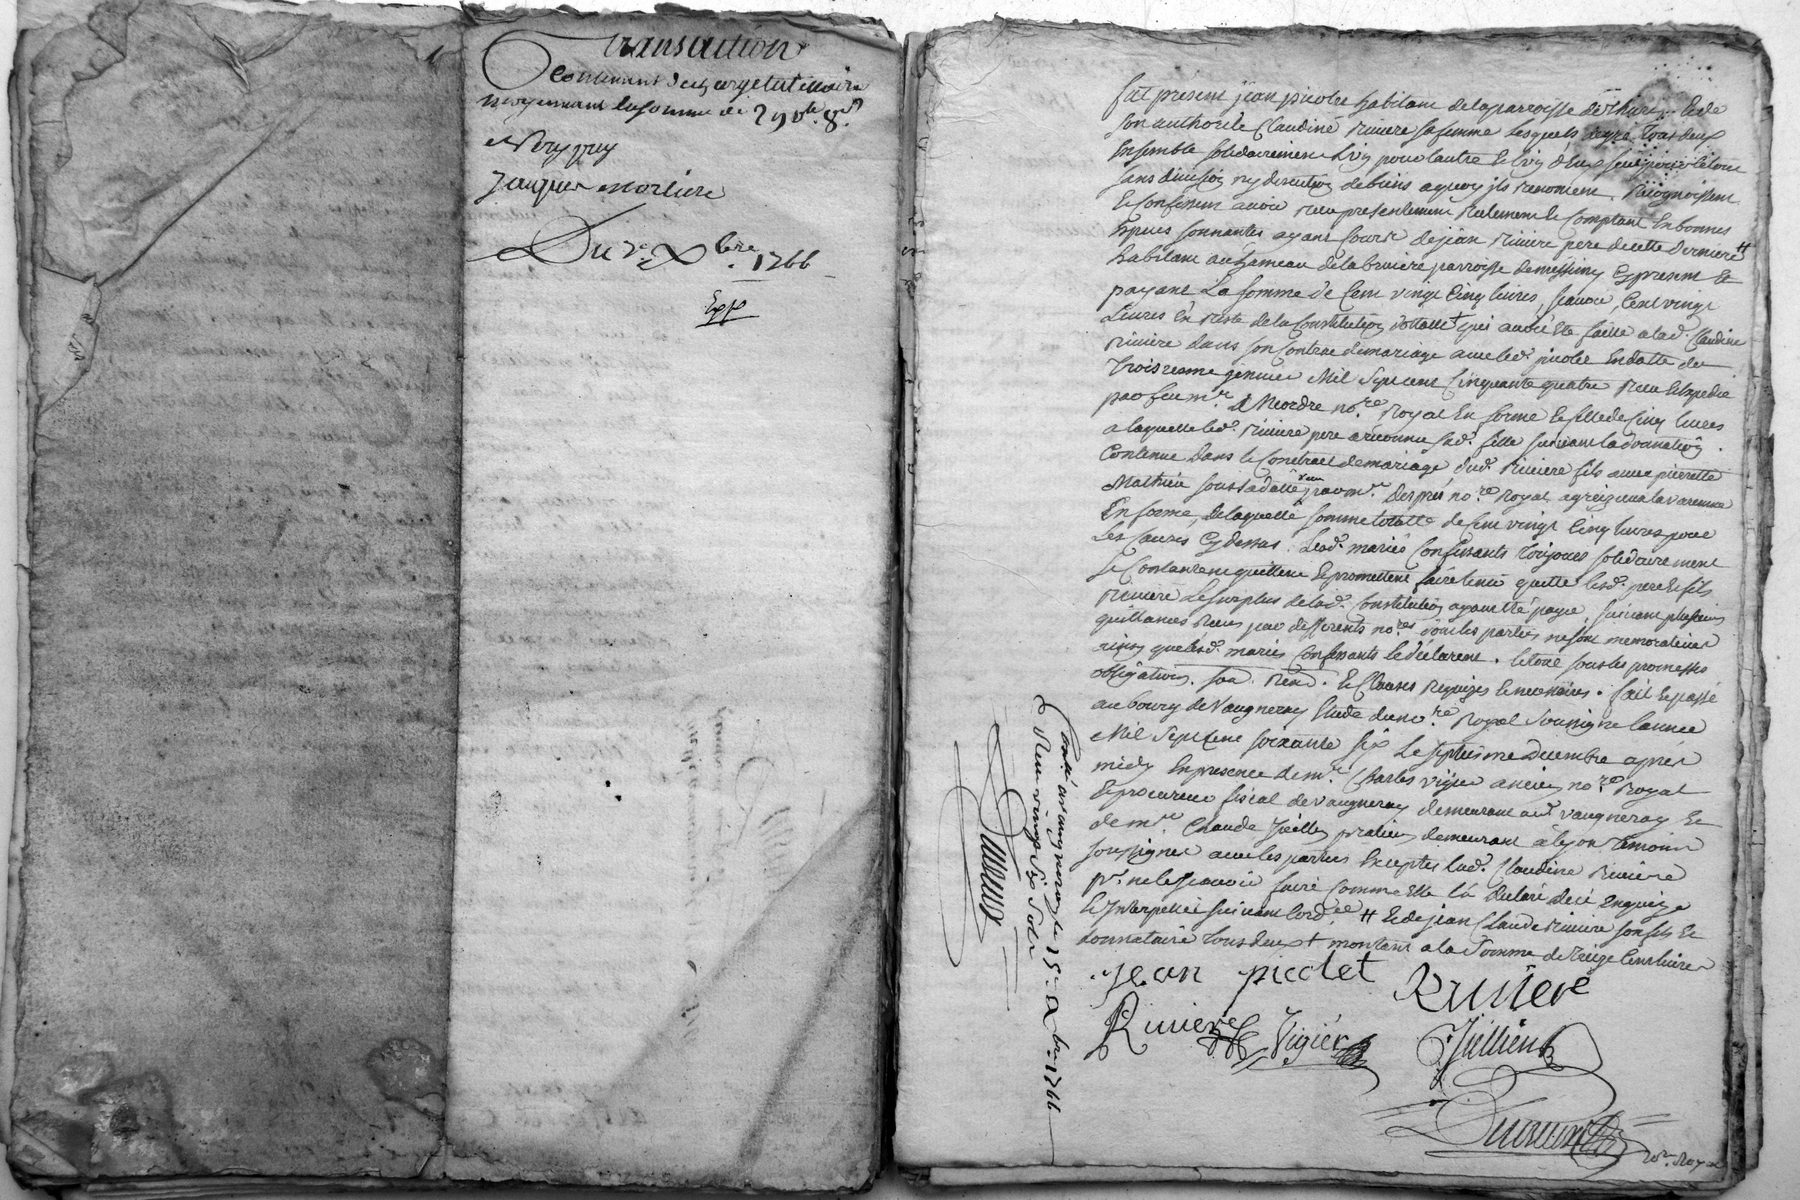 Transaction
Contenant descharge tutellaire
moyennant la somme de
Jacques mortiere
Du 7e Xbre 1766
Exp
fut present jean picolet habitant de la paroisse de Thurins Et de
son authorité Claudine Riviere sa femme lesquels de gré tous deux
Ensemble solidairement L'un pour l'autre Et l'un d'Eux seul pour le tout
sans division ny discution de biens a quoy ils renoncent, Recognoissent
Et Confessent avoir Receu presentement Reelement Et Comptant En bonnes
Especes sonnantes ayant Cours de jean Riviere pere de cette derniere #
habitant au hameau de la bruiere parroisse de messimy Cy present Et
payant La somme de Cent vingt Cinq livres, scavoir, Cent vingt
Livres En reste de la Constitution dottalle + qui avoit Eté faitte a lad. Claudine
Riviere dans son Contrat de mariage avec led. picolet En datte du
Troisieme jenvier Mil Sept cent Cinquante quatre Receu Et Expedié
par feu mr. Meordre nore. Royal En forme Et celle de Cinq livres
a laquelle led. Riviere pere a reconnu sad. fille suivant la donation
Contenue dans le Contract de mariage dud. Riviere fils avec pierrette
Mathieu sous sa datte Receu par mr. Després nore Royal a grezieu la varenne
En forme, de laquelle somme totalle de Cent vingt Cinq livres pour
Les Causes Cy dessus. Lesd. mariés Confessants toujours solidairement
se Contantent quittent Et promettent faire tenir quitte lesd. pere Et fils
Riviere Le surplus de lad. Constitution ayant été payé suivant plusieurs
quittances Receues par differents nores dont les parties ne sont memoratives
ainsy que lesd. mariés Confessants le declarent. Et tout sous les promesses
obligations. soum. Renon. Et Clauses Requizes Et necessaires. fait Et passé
au bourg de Vaugneray Etude du nore. Royal Soussigné l'année
Mil Sept Cent soixante six Le septieme decembre aprés
midy En presence de mr. Charles Vigier ancien nore Royal
Et procureur fiscal de vaugneray demeurant aud. vaugneray Et
de mr. Claude Jüillien praticien demeurant a lyon Temoins
soussignés avec les parties Exceptés lad. Claudine Riviere
pr. ne le scavoir faire Comme Elle l'a declaré de ce Enquize
Et Interpellée suivant l'ordce # Et de jean Claude Riviere son fils Et
donnataire tous deux + montant a la somme de Treize Cent livres
jean picolet
Riviere
Riviere
Vigier
Jüillien
nore. Royal
Contr. a vaugneray le 15e Xbre 1766
Receu vingt Six Sols